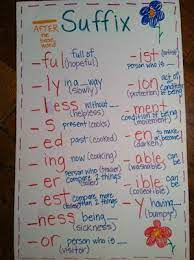 Suffix
AFTER
the base word
-ful full of (hopeful)
-ly in a __ way (slowly)
-less without (helpless)
-s present (cooks)
-ed past (cooked)
-ing now (cooking)
-er person who (teacher) compare 2 things
-est compare more
-ness being (sickness)
-or person who is (visitor)
-ist person who is (artist)
-ion act of (protection)
-ment condition of being
-en to make
-able can be
-ible can be
-y having (bumpy)